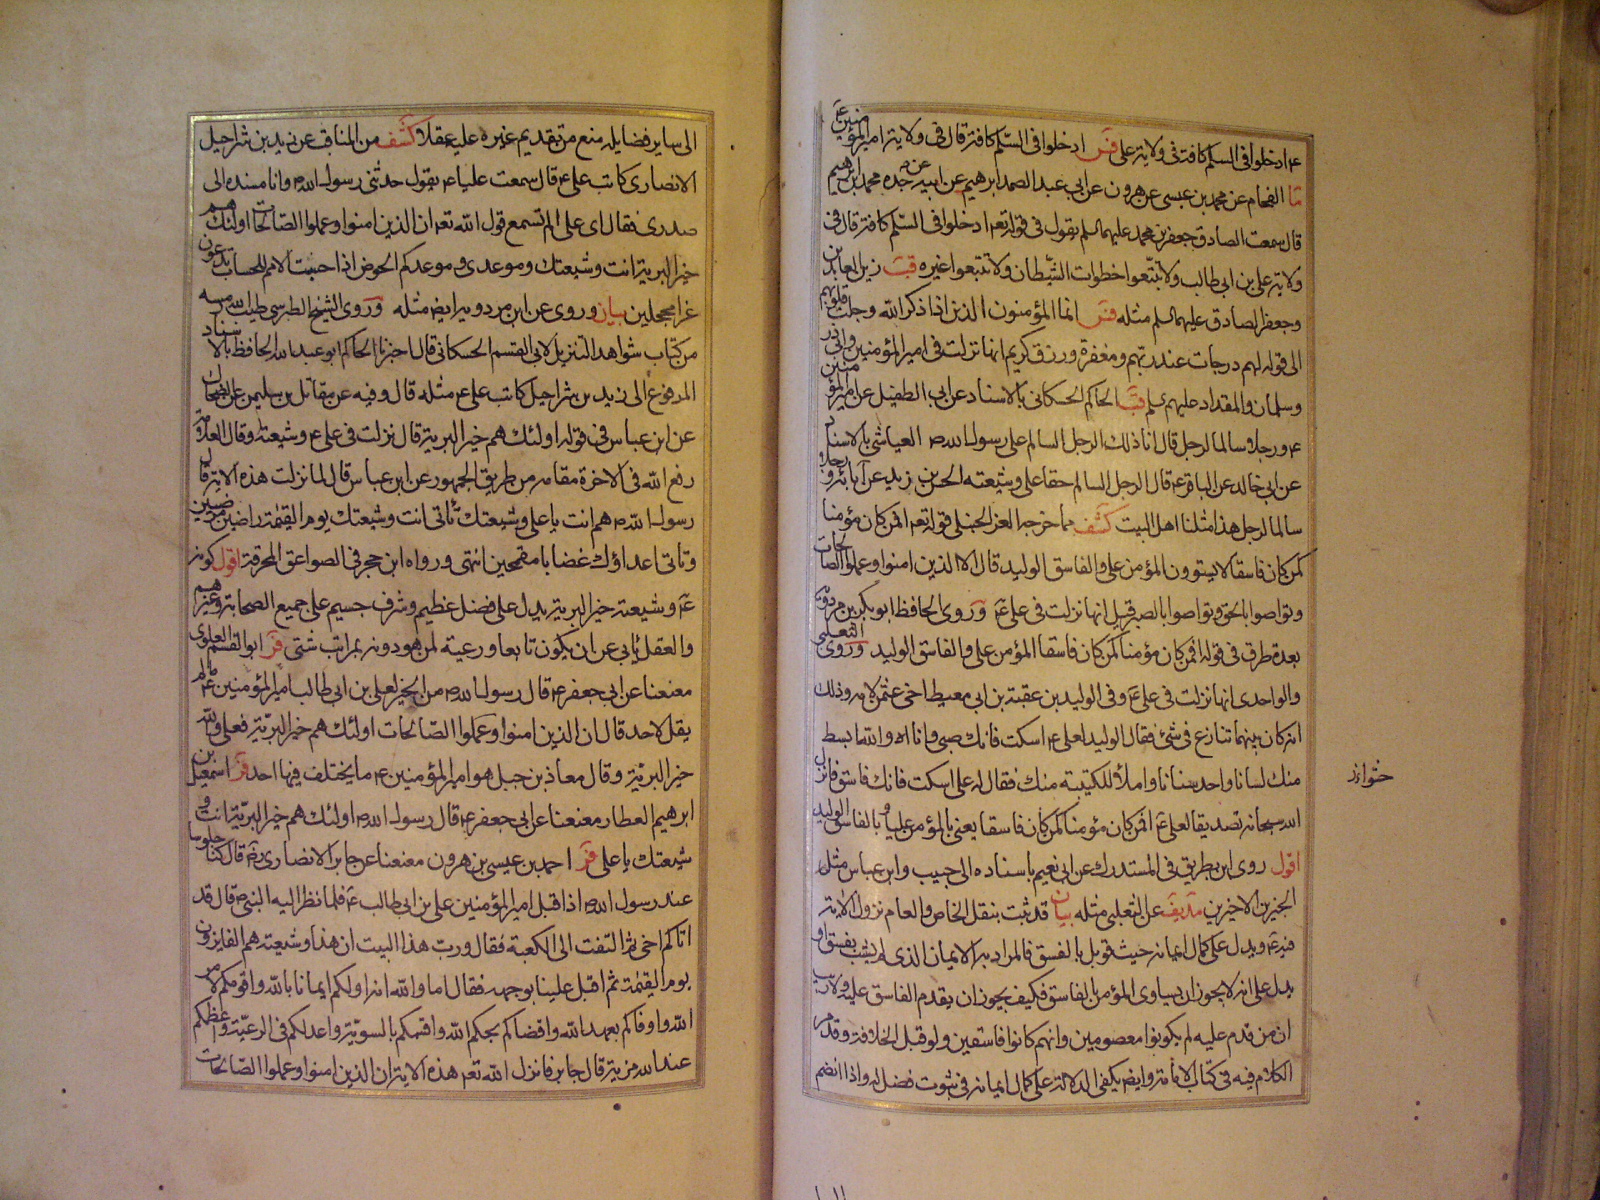 ع ادخلوا فى السلم كافة فى ولايته على فس ادخلوا فى السلم كافة قال فى ولاية امير المؤمنين ع
ما الفحام عن محمد بن عيسى عن هرون عن ابى عبد الصمد ابرهيم عن ابيه عن جده محمد ابن ابرهيم
قال سمعت الصادق جعفر بن محمد عليهما السلم يقول فى قوله تعه ادخلوا فى السلم كافة قال فى
ولاية على بن ابى طالب ولا تتبعوا خطوات الشيطان ولا تتبعوا غيره قب زين العابدين
وجعفر الصادق عليهما السلم مثله فس انما المؤمنون الذين اذا ذكر الله وجلت قلوبهم
الى قوله لهم درجات عند ربهم ومغفرة ورزق كريم انها نزلت فى امير المؤمنين وابى ذر
وسلمان والمقداد عليهم سلم قب الحاكم الحسكانى بالاسناد عن ابى الطفيل عن امير المؤمنين
ع ورجلا سالما لرجل قال انا ذلك الرجل السالم على رسول الله ص العياشى بالاسناد
عن ابى خالد عن الباقر ع قال الرجل السالم حقا على وشيعته الحسن بن زيد عن آبائه ورجلا
سالما لرجل هذا مثلنا اهل البيت كشف مما خرجه العز الحنبلى قوله تعه افمن كان مؤمنا
كمن كان فاسقا لا يستوون المؤمن على والفاسق الوليد قال الا الذين امنوا وعملوا الصالحات
وتواصوا بالحق وتواصوا بالصبر قيل انها نزلت فى على ع وروى الحافظ ابو بكر بن مردويه
بعدة طرق فى قوله افمن كان مؤمنا كمن كان فاسقا المؤمن على والفاسق الوليد وروى الثعلبى
والواحدى انها نزلت فى على ع وفى الوليد بن عقبة بن ابى معيط اخى عثمن لامه وذلك
انه كان بينهما تنازع فى شئ فقال الوليد لعلى ع اسكت فانك صبى وانا والله ابسط
منك لسانا واحد سنانا واملأ للكتيبة منك فقال له على اسكت فانك فاسق فانزل
الله سبحانه تصديقا لعلى ع افمن كان مؤمنا كمن كان فاسقا يعنى بالمؤمن عليا وبالفاسق الوليد
اقول روى ابن بطريق فى المستدرك عن ابى نعيم باسناده الى حبيب وابن عباس مثل
الخبرين الاخيرين مد يف عن الثعلبى مثله بيان قد ثبت بنقل الخاص والعام نزول الاية
فيه ع ويدل على كمال ايمانه حيث قوبل بالفسق فالمراد به الايمان الذى لم يشب بفسق او
يدل على انه لا يجوز ان يساوى المؤمن بالفاسق فكيف يجوز ان يقدم الفاسق عليه ولا ريب
ان من قدم عليه لم يكونوا معصومين وانهم كانوا فاسقين ولو قبل الخلافة وقد مر
الكلام فيه فى كتاب الامامة وايضا يكفى الدلالة على كمال ايمانه فى ثبوت فضل له واذا انضم
الى ساير فضايله منع من تقديم غيره عليه عقلا كشف من المناقب عن يزيد بن شراحيل
الانصارى كاتب على ع قال سمعت عليا ع يقول حدثنى رسول الله ص وانا مسنده الى
صدرى فقال اى على الم تسمع قول الله تعه ان الذين امنوا وعملوا الصالحات اولئك هم
خير البرية انت وشيعتك وموعدى وموعدكم الحوض اذا جيئت الامم للحساب تدعون
غرا محجلين بيان وروى عن ابن مردويه ايض مثله وروى الشيخ الطبرسى طيب الله رمسه
من كتاب شواهد التنزيل لابى القسم الحسكانى قال اخبرنا الحاكم ابو عبد الله الحافظ بالاسناد
المرفوع الى يزيد بن شراحيل كاتب على ع مثله قال وفيه عن مقاتل بن سليمن عن الضحاك
عن ابن عباس فى قوله اولئك هم خير البرية قال نزلت فى على ع وشيعته وقال العلامة
رفع الله فى الاخرة مقامه من طريق الجمهور عن ابن عباس قال لما نزلت هذه الاية قال
رسول الله ص هم انت يا على وشيعتك تأتى انت وشيعتك يوم القيمة راضين مرضيين
وتاتى اعداؤك غضابا مقمحين انتهى ورواه ابن حجر فى الصواعق المحرقة اقول كونه
ع وشيعته خير البرية يدل على فضل عظيم وشرف جسيم على جميع الصحابة وغيرهم
والعقل يابى عن ان يكون تابعا ورعية لمن هو دونه بمراتب شتى فر ابو القسم العلوى
معنعنا عن ابى جعفر ع قال رسول الله ص من الخير لعلى بن ابى طالب امير المؤمنين ع ما لم
يقل لاحد قال ان الذين امنوا وعملوا الصالحات اولئك هم خير البرية فعلى والله
خير البرية وقال معاذ بن جبل هو امير المؤمنين ع ما يختلف فيها احد فر اسمعيل بن
ابرهيم العطار معنعنا عن ابى جعفر ع قال رسول الله ص اولئك هم خير البرية انت و
شيعتك يا على فر احمد بن عيسى بن هرون معنعنا عن جابر الانصارى رض قال كنا جلوسا
عند رسول الله ص اذ اقبل امير المؤمنين على بن ابى طالب ع فلما نظر اليه النبى ص قال قد
اتاكم اخى ثم التفت الى الكعبة فقال ورب هذا البيت ان هذا وشيعته هم الفايزون
يوم القيمة ثم اقبل علينا بوجهه فقال اما والله انه اولكم ايمانا بالله واقومكم لامر
الله واوفاكم بعهد الله واقضاكم بحكم الله واقسمكم بالسوية واعدلكم فى الرعية واعظمكم
عند الله مزية قال جابر فانزل الله تعه هذه الاية ان الذين امنوا وعملوا الصالحات